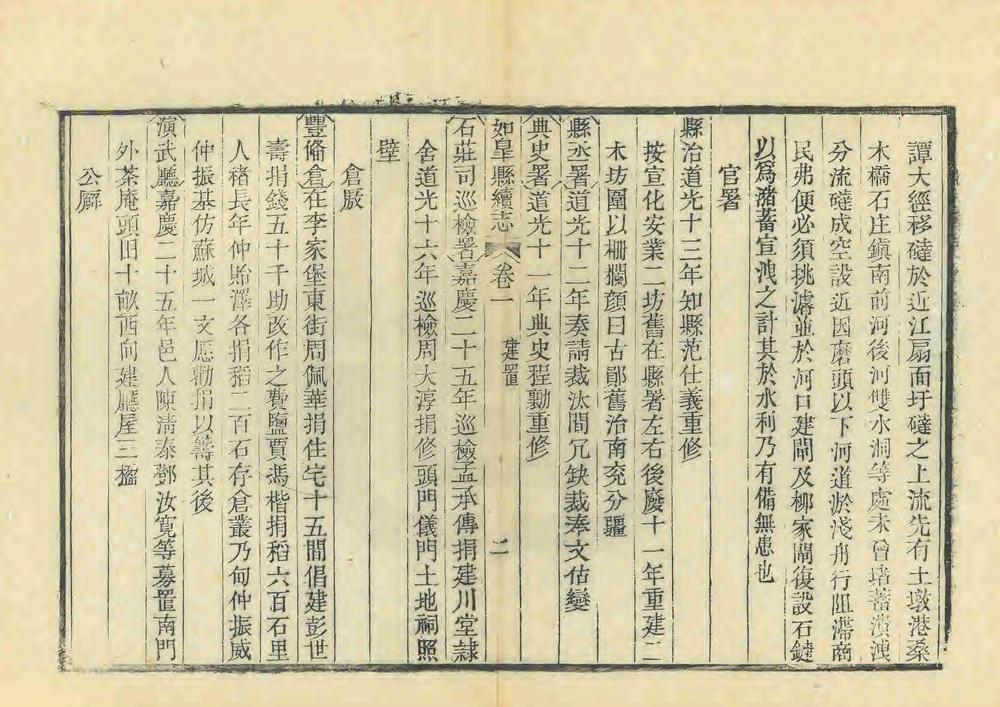 譚大經移䃮於近江扇面圩䃮之上流先有土墩港桑
木橋石庄鎮南前河後河雙水洞等處未曾堵蓄潰洩
分流䃮成空設近因磨頭以下河道淤淺舟行阻滯商
民弗便必須挑濬並於河口建閘及柳家閘復設石䃮
以爲瀦蓄宣洩之計其於水利乃有備無患也
官署
縣治道光十三年知縣范仕義重修
按宣化安業二坊舊在縣署左右後廢十一年重建二
木坊圍以柵欄顏曰古鄖舊治南兖分疆
縣丞署道光十二年奏請裁汰閒冗缺裁奏文估變
典史署道光十一年典史程勳重修
如臯縣續志 卷一 建置 二
石莊司巡檢署嘉慶二十五年巡檢孟承傳捐建川堂隷
舍道光十六年巡檢周大淳捐修頭門儀門土地祠照
壁
倉厫
豐偹倉在李家堡東街周佩華捐住宅十五間倡建彭世
壽捐錢五十千助改作之費鹽賈馮楷捐稻六百石里
人禇長年仲貽澤各捐稻二百石存倉叢乃甸仲振威
仲振基仿蘇城一文愿勸捐以籌其後
演武廳嘉慶二十五年邑人陳淸泰鄧汝寛等募置南門
外茶庵頭田十畝西向建廳屋三楹
公廨